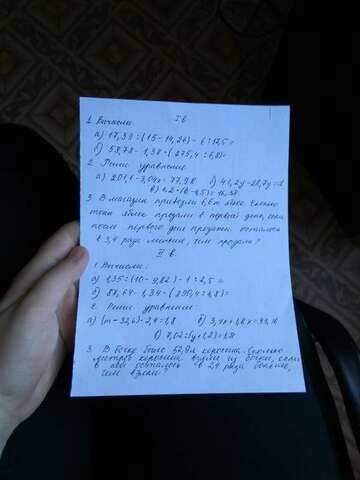 I в
1 Вычисли
а) 17,39:(15-14,26)-6:12,5=
б) 58,78-1,38·(275,4:6,8)=
2. Реши уравнение
а) 201,1-3,04х=77,98 б) 41,2у-28,7у=
в) 1,2·( -1,5)=
3. В магазин привезли 6,6т яблок. Сколько
тонн яблок продали в первый день, если
после первого дня продажи осталось
в 3,4 раза меньше, чем продали?
II в.
1. Вычисли:
а) 1,35:(10-9,82)-1:2,5=
б) 87,64-1,34·( :4,8)=
2. Реши уравнение:
а) (m-32,6)·2,4=1,8 б) 3,4х+1,8х=
в) 7,02:(у+1,2)=1,8
3. В бочке было 52,9л керосина. Сколько
литров керосина взяли из бочки, если
в ней осталось в 2,4 раза больше,
чем взяли?